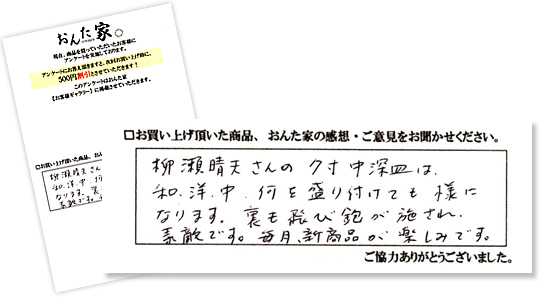 おんた家
現在、商品を買っていただいたお客様に
アンケートを実施しております。
アンケートにお答え頂きますと、次回お買い上げ時に、
500円割引とさせていただきます!
このアンケートはおんた家
【お客様ギャラリー】に掲載させていただきます。
□お買い上げ頂いた商品、おんた家の感想・ご意見をお聞かせください。
柳瀬晴天さんの 7寸中深皿は、
和.洋.中.何を盛り付けても 様に
なります。裏も飛び鉋が施され、
素敵です。毎月、新商品が楽しみです。
ご協力ありがとうございました。
□お買い上げ頂いた商品、おん
柳瀬晴天さん
和.洋.中.
なります.裏
素敵です。